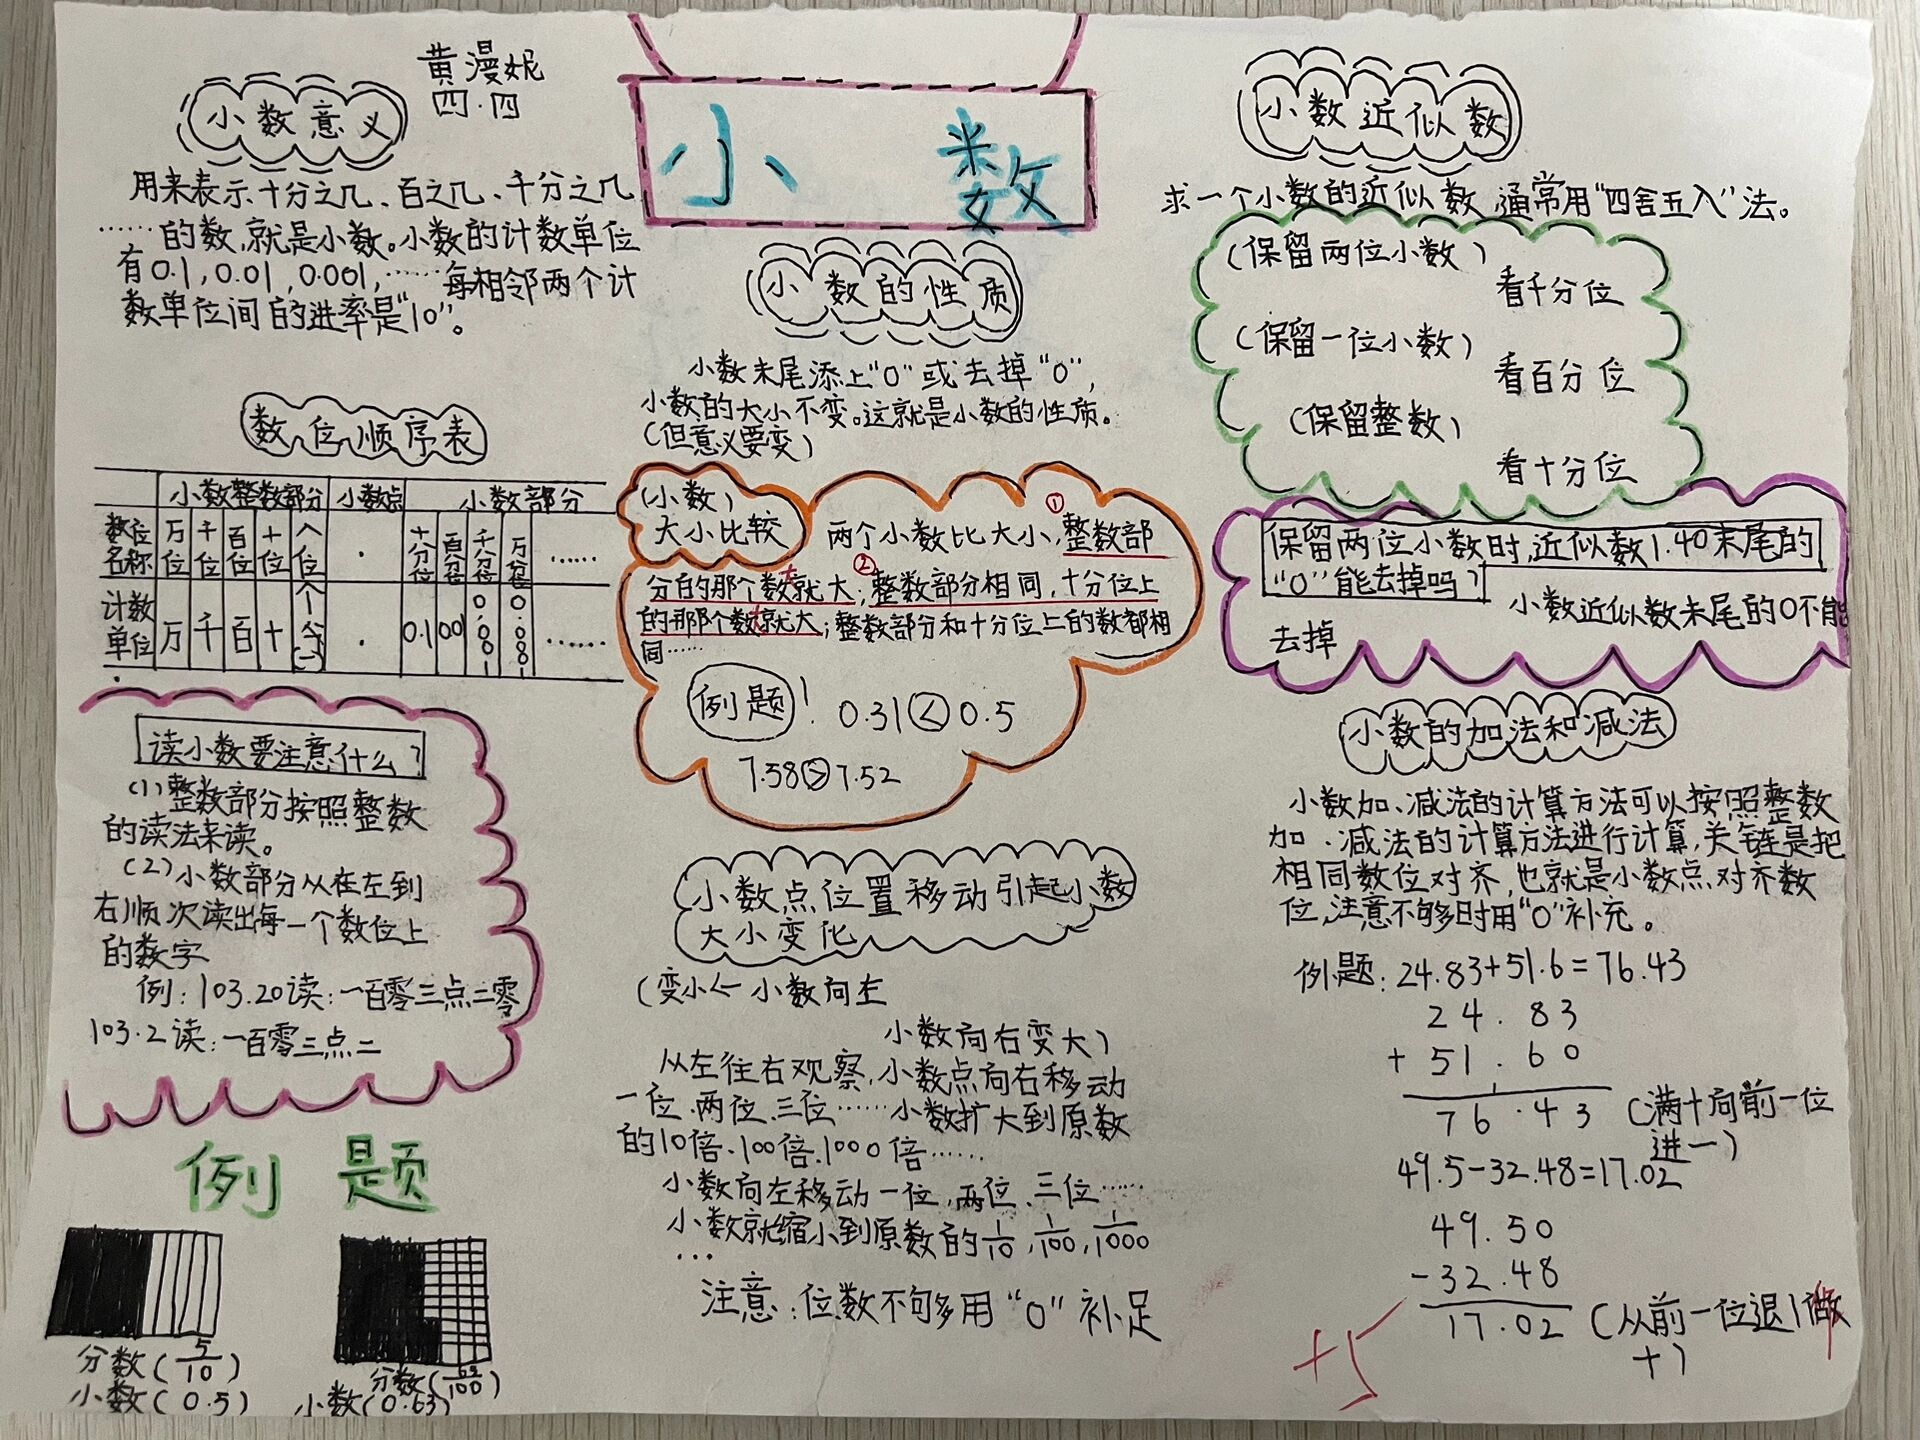 黄漫妮
四.四
小数
小数意义
用来表示十分之几、百之几、千分之几
……的数,就是小数。小数的计数单位
有0.1,0.01,0.001,……每相邻两个计
数单位间的进率是"10"。
数位顺序表
小数整数部分 小数点 小数部分
数位名称 万位 千位 百位 十位 个位 . 十分位 百分位 千分位 万分位 ……
计数单位 万 千 百 十 个(一) . 0.1 0.001 0.0001 ……
读小数要注意什么?
(1)整数部分按照整数
的读法来读。
(2)小数部分从在左到
右顺次读出每一个数位上
的数字
例:103.20读:一百零三点二零
103.2读:一百零三点二
例题
分数(5/10)
小数(0.5)
分数(63/100)
小数(0.63)
小数的性质
小数末尾添上"0"或去掉"0",
小数的大小不变。这就是小数的性质。
(但意义要变)
(小数)
大小比较
两个小数比大小,①整数部
分白的那个数大就大;②整数部分相同,十分位上
的那那个数大就大;整数部分和十分位上的数都相
同……
例题! 0.31<0.5
7.58>7.52
小数点位置移动引起小数
大小变化
(变小←小数向左
小数向右变大)
从左往右观察,小数点向右移动
一位、两位、三位……小数扩大到原数
的10倍、100倍、1000倍……
小数向左移动一位,两位、三位……
小数就缩小到原数的1/10,1/100,1/1000
…
注意:位数不够多用"0"补足
小数近似数
求一个小数的近似数,通常用"四舍五入"法。
(保留两位小数)
看千分位
(保留一位小数)
看百分位
(保留整数)
看十分位
保留两位小数时,近似数1.40末尾的
"0"能去掉吗?
小数近似数末尾的0不能
去掉
小数的加法和减法
小数加、减法的计算方法可以按照整数
加、减法的计算方法进行计算,关键是把
相同数位对齐,也就是小数点对齐数
位,注意不够多时用"0"补充。
例题:24.83+51.6=76.43
24.83
+51.60
1
76.43 (满十向前一位
进一)
49.5-32.48=17.02
49.50
-32.48
17.02 (从前一位退1做
十)
+5